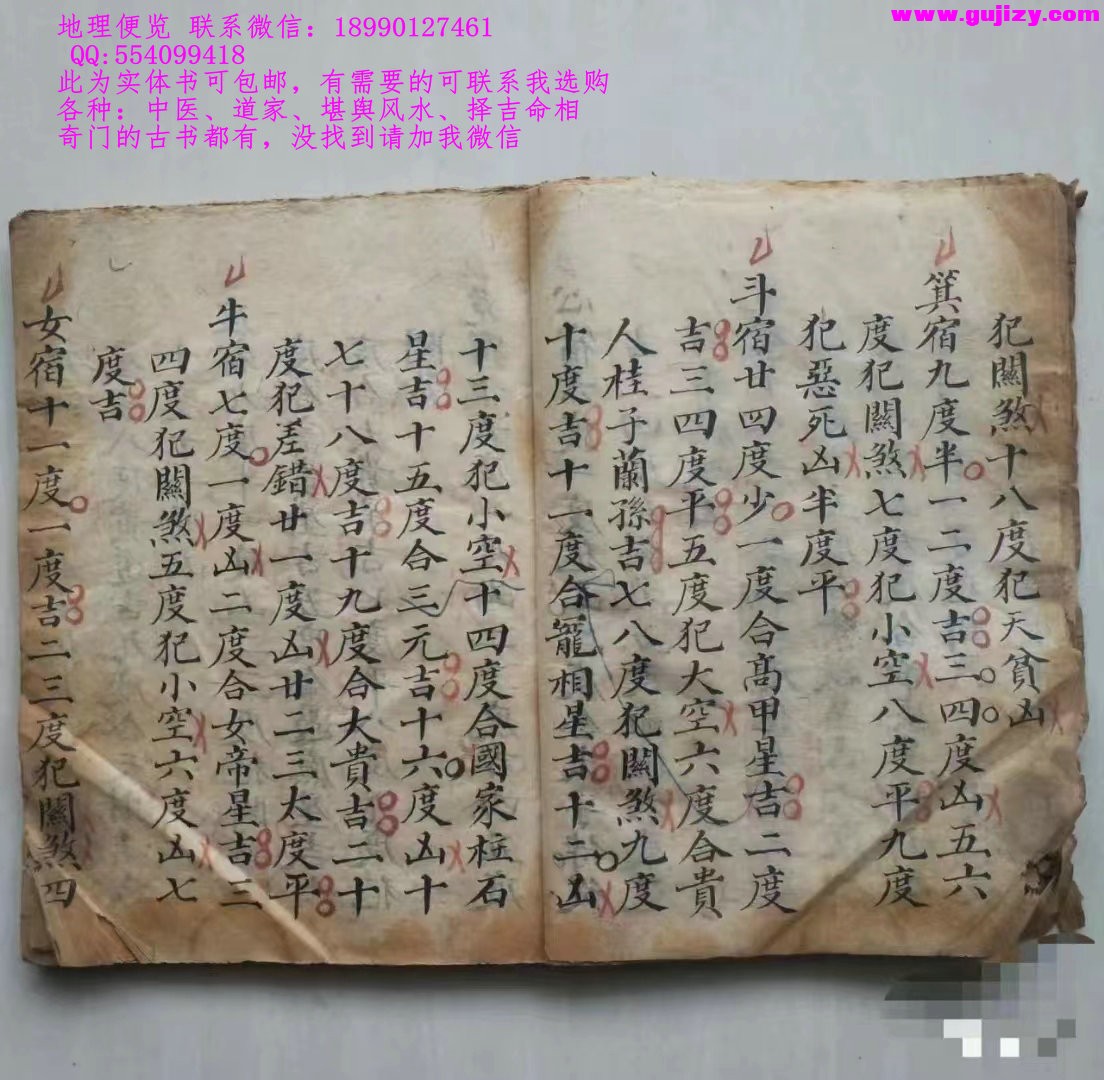 地理便览 联系微信：18990127461
QQ:554099418
此为实体书可包邮，有需要的可联系我选购
各种：中医、道家、堪舆风水、择吉命相
奇门的古书都有，没找到请加我微信
www.gujizy.com
犯關煞十八度犯天貧凶
箕宿九度半一二度吉三四度凶五六
度犯關煞七度犯小空八度平九度
犯惡死凶半度平
斗宿廿四度少一度合高甲星吉二度
吉三四度平五度犯大空六度合貴
人桂子蘭孫吉七八度犯關煞九度
十度吉十一度合寵相星吉十二凶
十三度犯小空十四度合國家柱石
星吉十五度合三元吉十六度凶十
七十八度吉十九度合大貴吉二十
度犯差錯廿一度凶廿二三太度平
牛宿七度一度凶二度合女帝星吉三
四度犯關煞五度犯小空六度凶七
度吉
女宿十一度一度吉二三度犯關煞四